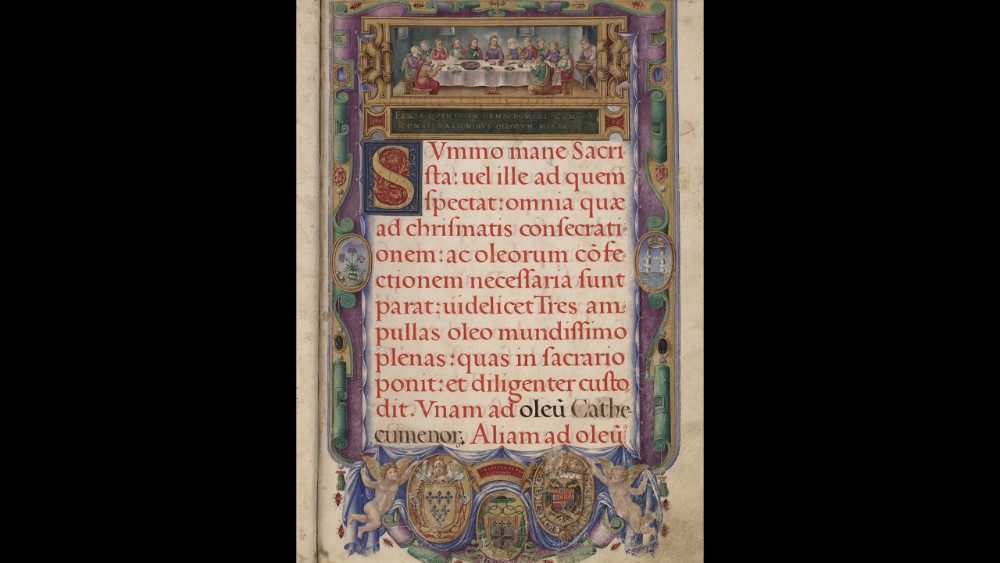 FERIA QVINTA IN CENA DOMINI CVM
CONSECRATIONIBVS OLEORVM
SVmmo mane Sacri
ſta: uel ille ad quem
ſpectat: omnia quæ
ad chriſmatis conſecrati-
onem: ac oleorum cōfe-
ctionem neceſſaria ſunt
parat: uidelicet Tres am-
pullas oleo mundiſſimo
plenas: quas in ſacrario
ponit: et diligenter cuſto
dit. Vnam ad oleū Cathe-
cumenor. Aliam ad oleū